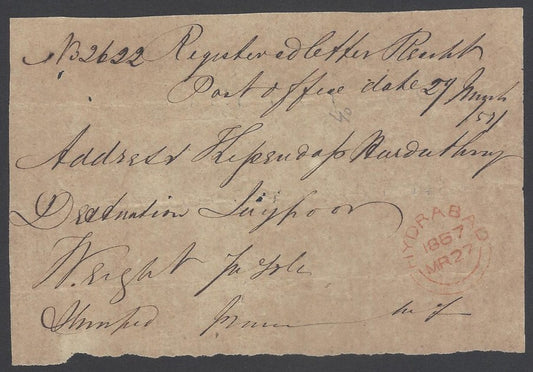 No 2622 Registered letter Receipt
Post office date 27 March
/57
Address Kripendass Hurduthroy
Destination Jeypoor
Weight
Stamped
HYDRABAD
1857
MR 27